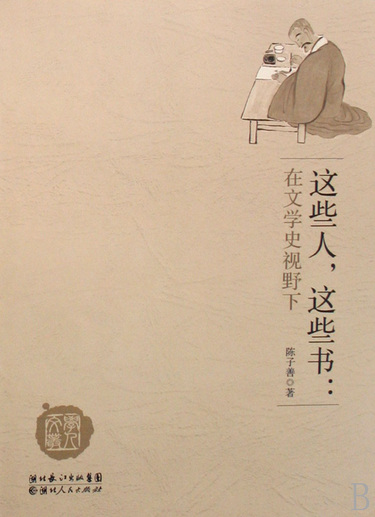 这些人，这些书：
在文学史视野下
陈子善◎著
學人
文
湖北长江出版集团
湖北人民出版社
B